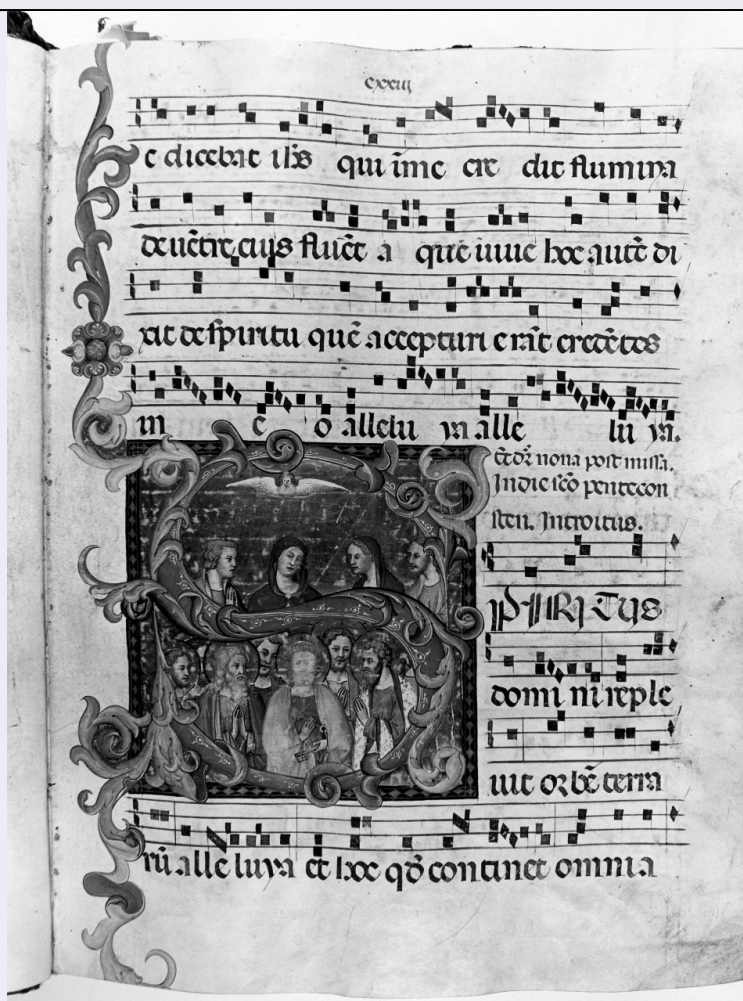 cxxiij
e dicebat ihs qui ī me cre dit flumina
de uētre eius fluēt a que uiue hoc autē di
xit de spiritu quē accepturi erāt credētes
in e o allelu ya alle lu ya.
Et dr nona post missa.
In die scō pentecon
sten. Introitus.
SPIRITUS
domi ni reple
uit orbē terra
rū alle luya et hoc qđ continet omnia